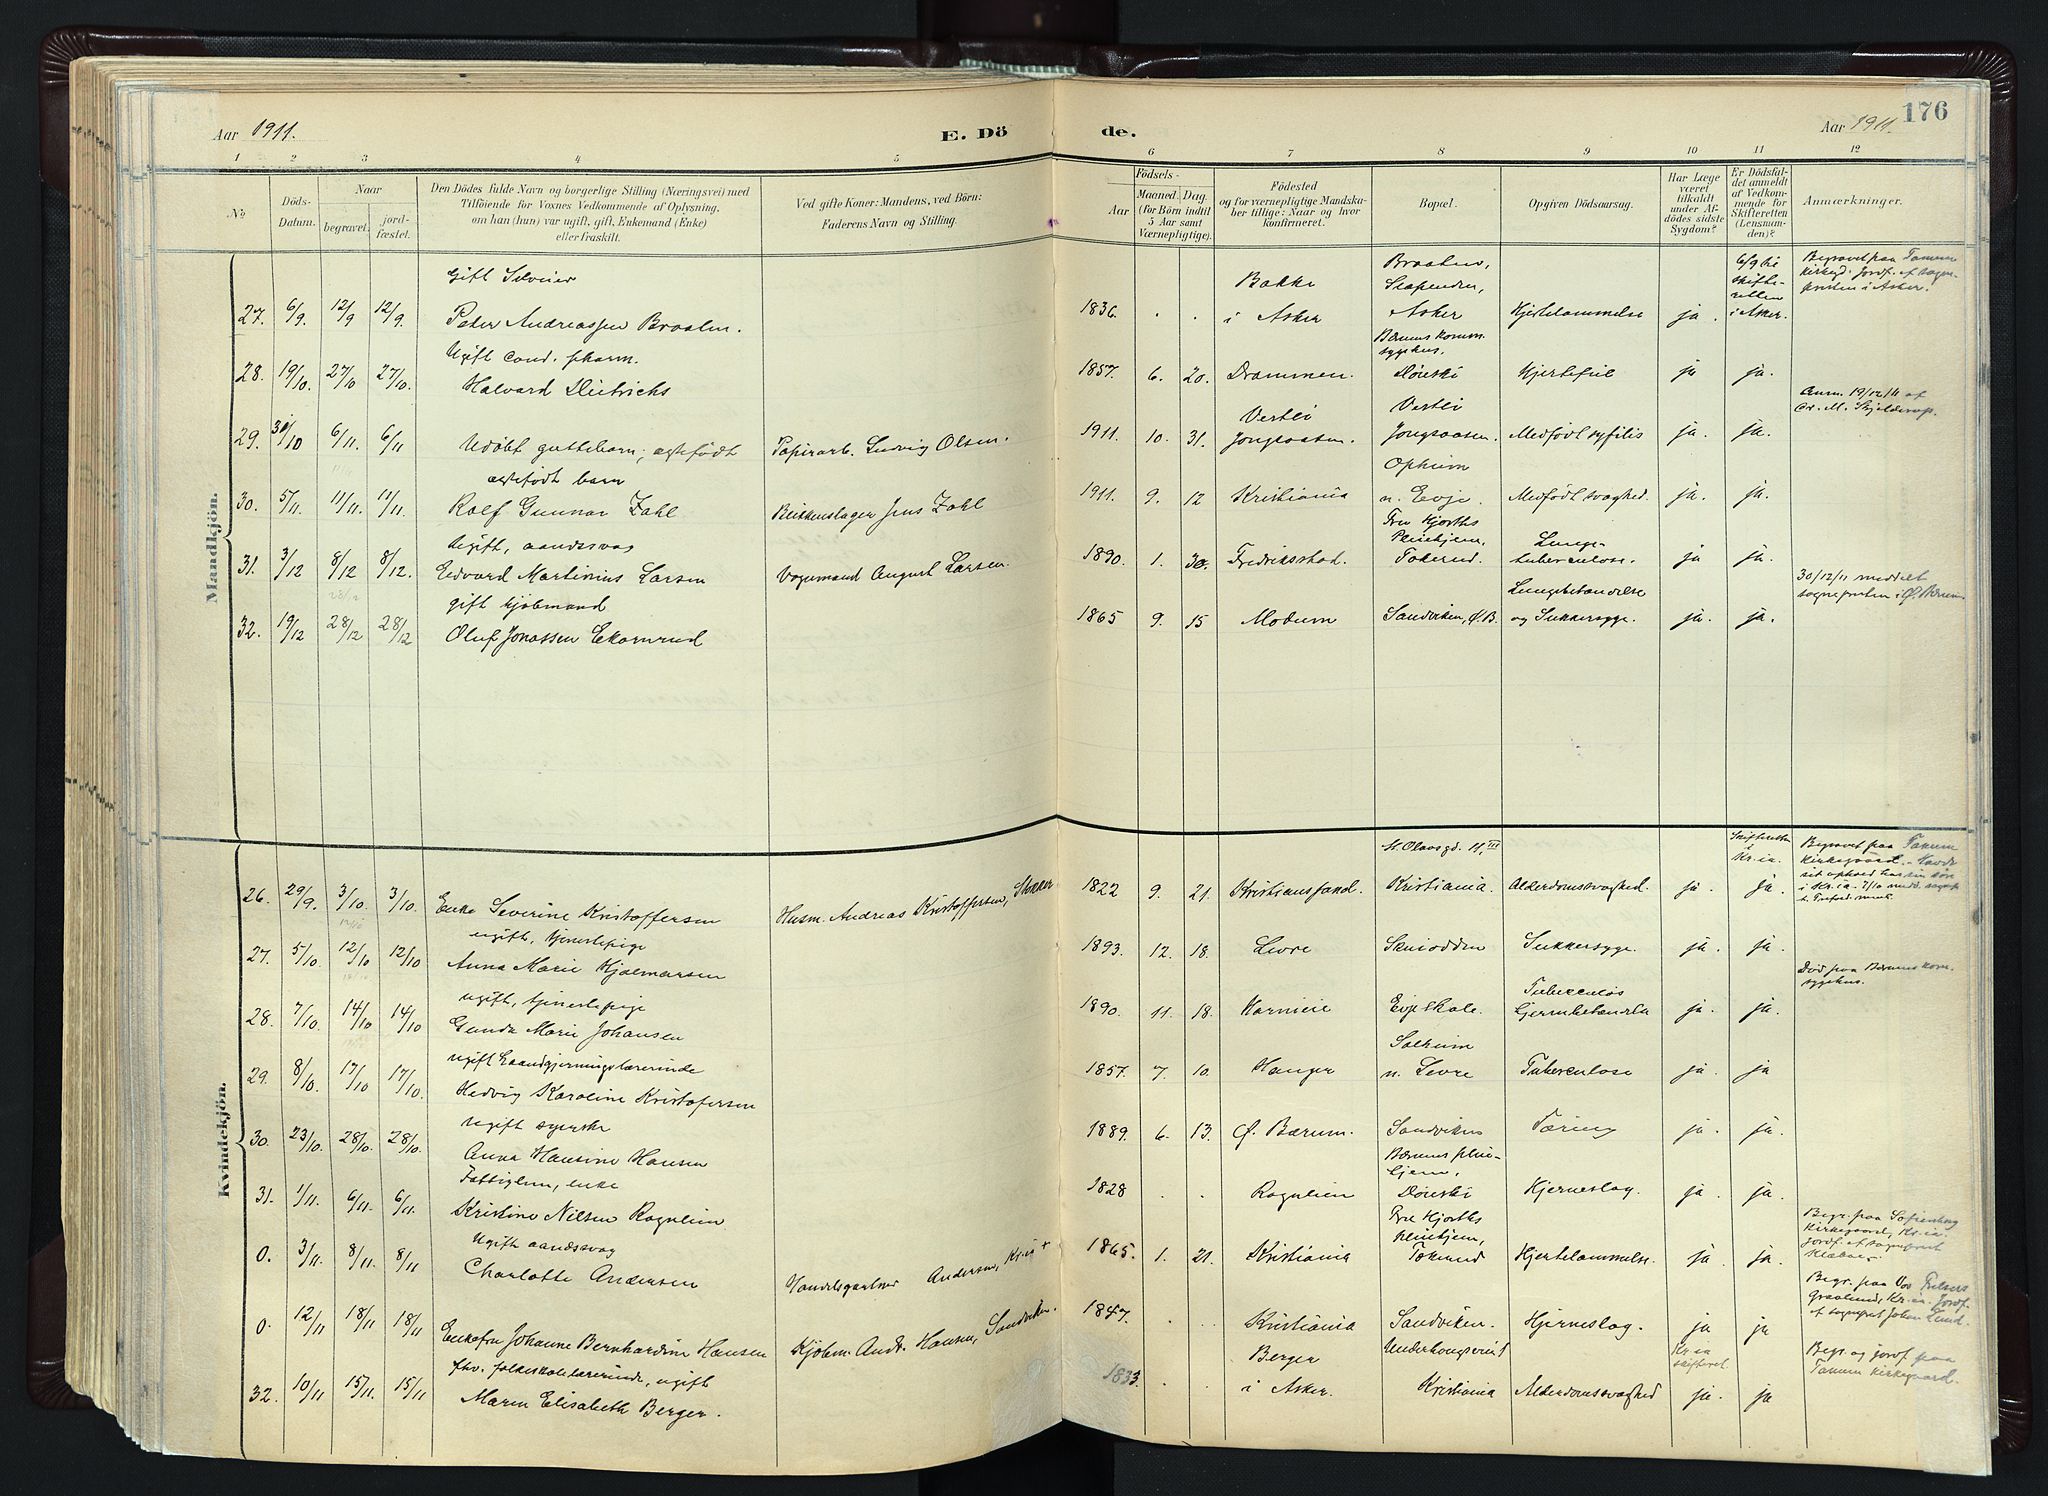 176
Aar 1911.
E. Döde.
Aar 1911.
1 2 3 4 5 6 7 8 9 10 11 12
No.
Döds-Datum.
Naar
begravet.
jord-fæstet.
Den Dödes fulde Navn og borgerlige Stilling (Næringsvei) med
Tilföiende for Voxnes Vedkommende af Oplysning,
om han (hun) var ugift, gift, Enkemand (Enke)
eller fraskilt.
Ved gifte Koner: Mandens, ved Börn:
Faderens Navn og Stilling.
Födsels-
Aar
Maaned. Dag.
(for Börn indtil
5 Aar samt
Værnepligtige).
Födested
og for værnepligtige Mandska-
ber tillige: Naar og hvor
konfirmeret.
Bopæl.
Opgiven Dödsaarsag.
Har Læge
været
tilkaldt
under Af-
dödes sidste
Sygdom?
Er Dödsfal-
det anmeldt
af Vedkom-
mende for
Skifteretten
(Lensman-
den)?
Anmærkninger.
Mandkjön.
Gift
27. 6/9. 12/9 12/9. Peter Andreassen Braaten. 1836. Bakke i Asker Braaten, Slependen, Asker Hjertelammelse ja. 6/9 til skifte-retten i Asker. Begravet paa Tanum kirkegd. Jordf. af sogne-presten i Asker.
Ugift cand. pharm.
28. 19/10. 27/10 27/10. Halvard Dietrichs 1857. 6. 20. Drammen. Bærums komm. sygehus. Dønski Hjertefeil ja ja.
29. 31/10 6/11. 6/11 Udøbt guttebarn, ægtefødt Papirarb. Ludvig Olsen. 1911. 10. 31. Vestli Jongsaasen. Vestli Jongsaasen. Medfødt syfilis ja. ja. Anm. 19/12/11 af Cr. M. Skjelderup.
ægtefødt barn
30. 5/11. 11/11. 11/11. Rolf Gunnar Zahl Blikkenslager Jens Zahl 1911. 9. 12 Kristiania Opheim n. Evje. Medfødt svaghed. ja. ja.
Ugift, aandssvag
31. 3/12 8/12 8/12. Edvard Martinius Larsen Vognmand August Larsen. 1890. 1. 30. Fredriksstad. Fru Hjorths Pleiehjem, Tokerud. Lunge-tuberculose. ja ja.
gift kjøbmand
32. 19/12 28/12 28/12 Oluf Jonassen Ekornrud 1865 9. 15 Modum Sandviken, Ø. B. Lungebetændelse og Sukkersyge. ja. ja. 30/12/11 meddelt sognepresten i Ø. Bærum.
Kvindekjön.
26. 29/9. 3/10. 3/10. Enke Severine Kristoffersen Husm. Andreas Kristoffersen, 1822 9. 21. Kristianssand. St. Olavsgd. 11, III Kristiania. Alderdomssvaghed. ja. Skifteretten i Kr.ia. ja. Begravet paa Tanum Kirkegaard. - Havde sit ophold hos sin søn i Kr.ia.
ugift, tjenestepige
27. 5/10. 12/10 12/10 Anna Marie Hjalmarsen 1893. 12. 18. Levre Sukkersyge. ja ja. Død paa Bærums kom. sygehus.
ugift, tjenestepige
28. 7/10. 14/10 14/10 Gunda Marie Johansen 1890. 11. 18. Evje skole. Tuberculøs Hjernebetændelse ja. ja.
ugift haandgjerningslærerinde
29. 8/10. 17/10 17/10. Hedvig Karoline Kristofersen 1857. 7. 10. Hauger Solheim n. Levre Tuberculose ja. ja
ugift syerske
30. 23/10. 28/10. 28/10. Anna Hansine Hansen 1889. 6. 13. Ø. Bærum. Sandviken Tæring ja. ja.
Fattiglem, enke
31. 1/11. 6/11. 6/11. Kristine Nilsen 1828 Bærums pleie-hjem, Dønski Hjerneslag. ja. ja.
Ugift aandssvag
0. 3/11. 8/11. 8/11 Charlotte Andersen Handelsgartner Andersen, Kr.ia + 1865. 1. 21. Kristiania Fru Hjorths pleiehjem, Tokerud Hjertelammelse. ja ja. Begr. paa Sofienberg Kirkegaard, Kr.ia. Jordf. af sogneprest
0. 12/11 18/11 18/11 Enkefru Johanne Bernhardine Hansen Kjøbm. Andr. Hansen, Sandviken. 1847. Kristiania Sandviken. Hjerneslag. ja ja Begr. paa Vor Frelsers Gravlund, Kr.ia. Jordf. af sognepr. Johan Lund.
fhv. folkeskolelærerinde, ugift
32. 10/11 15/11. 15/11 Maren Elisabeth Berger. 1833. Berger i Asker. Kristiania Alderdomssvaghed Kr.ia skifteret. ja. ja Begr. og jordf. paa Tanum kirkegaard.